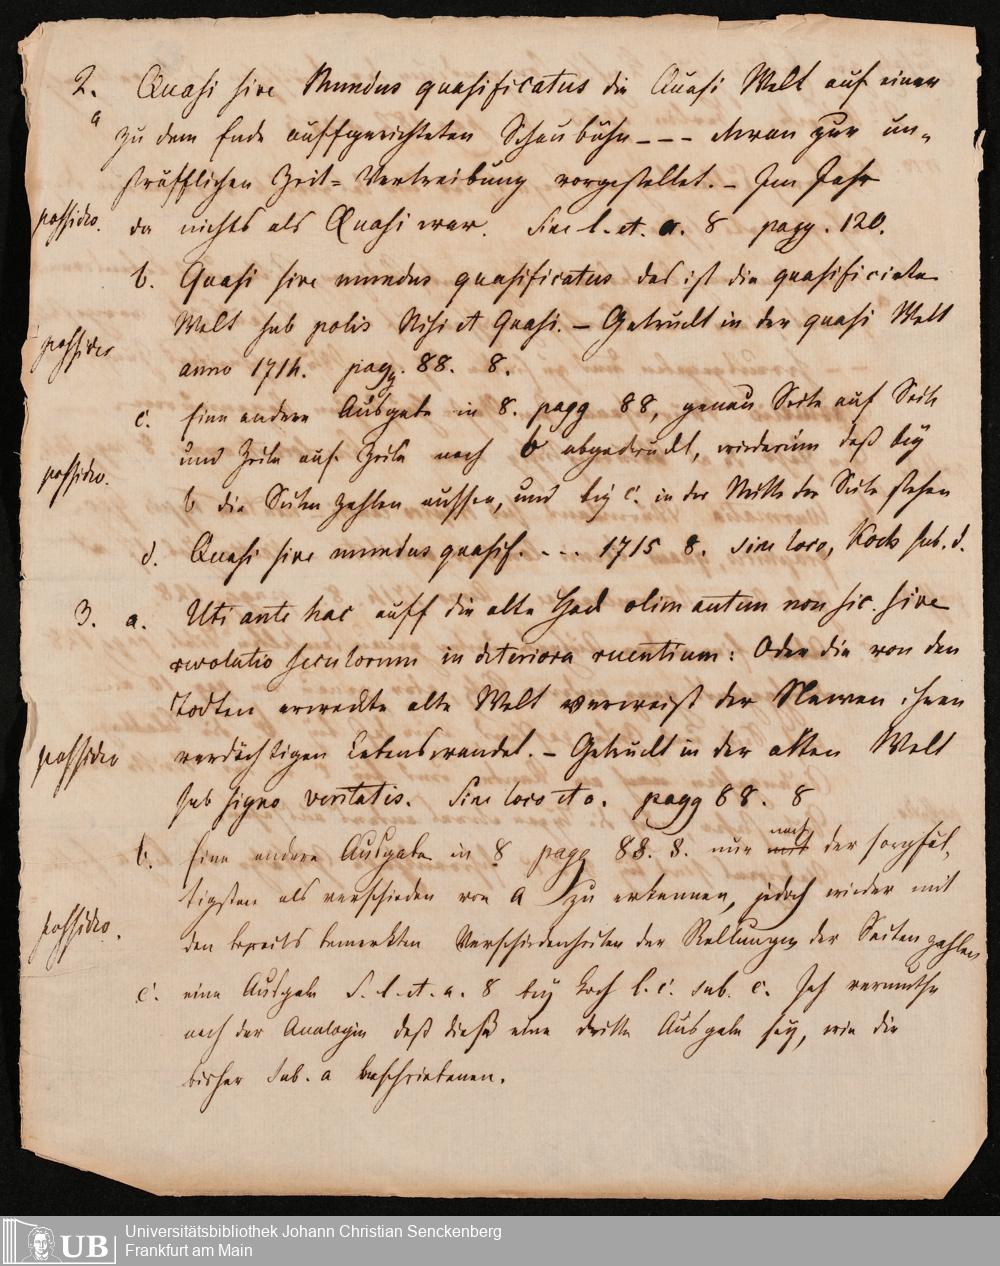 2. Quasi sive Mundus quasificatus die Quasi Welt auf einer
a
zu dem Ende auffgerichteten Schaubühn --- etwan zur un-
sträfflichen Zeit-Vertreibung vorgestellet. - Im Jahr
possideo. da nichts als Quasi war. Sine l. et. a. 8 pagg. 120.
b. Quasi sive mundus quasificatus das ist die quasificirte
Welt sub polis Nisi et Quasi. - Getruckt in der quasi Welt
possideo anno 1714. pagg. 88. 8.
c. Eine andere Ausgabe in 8. pagg 88, genau Seite auf Seite
und Zeile auf Zeile nach b abgedruckt, wiederum daß bey
possideo. b die Seiten zahlen aussen, und bey c. in der Mitte der Seite stehen
d. Quasi sive mundus quasif. - - - 1715 8. sine loco, Koch sub. d.
3. a. Uti ante hac auff die alte Hack olim autem non sic. sive
revolutio seculorum in deteriora ruentium: Oder die von den
Todten erweckte alte Welt verweist der Newen ihren
possideo verdächtigen Lebenswandel. - Getruckt in der alten Welt
sub signo veritatis. Sine loco et a. pagg 88. 8
b. Eine andere Ausgabe in 8 pagg 88. 8. nur nach der sorgfäl-
tigsten als verschieden von a zu erkennen, jedoch wieder mit
possideo. den bereits bemerkten Verschiedenheiten der Stellungen der Seitenzahlen
c. eine Ausgabe S. l. et. a. 8 bey Koch l. c. sub. c. Ich vermuthe
nach der Analogie daß dieß eine dritte Ausgabe sey, wie die
bisher sub. a beschriebenen.
UB
Universitätsbibliothek Johann Christian Senckenberg
Frankfurt am Main